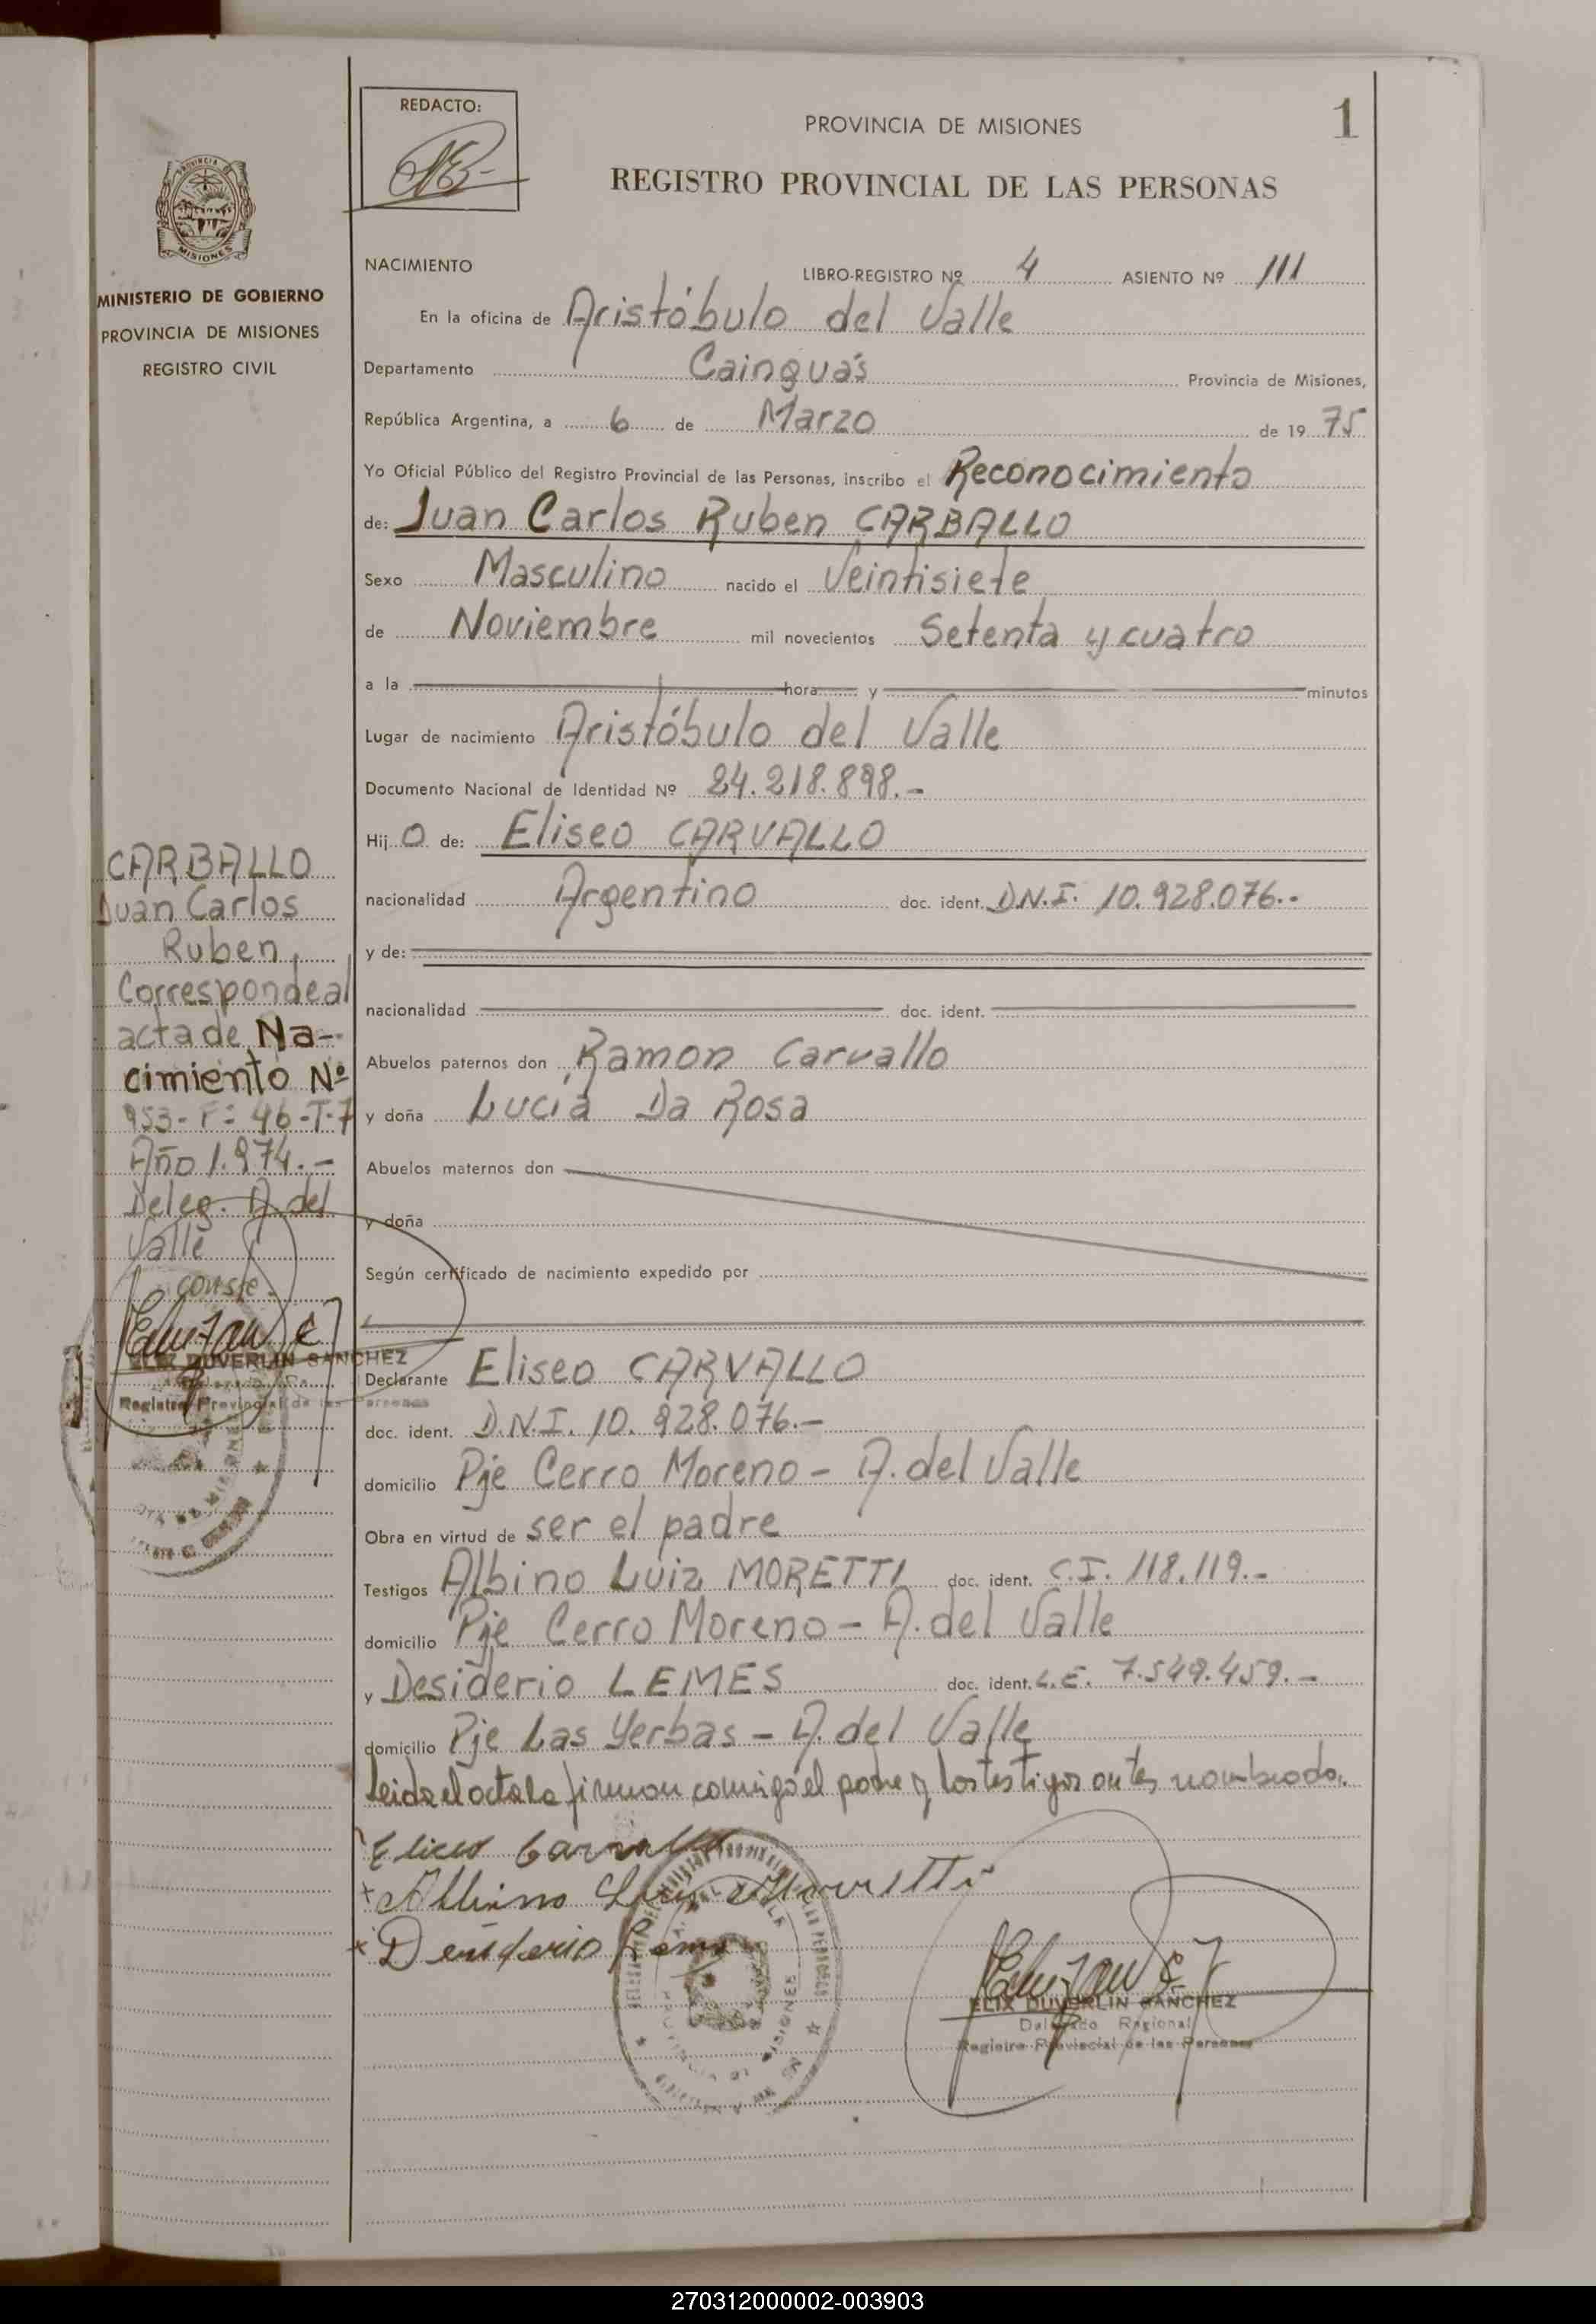 REDACTO:
PROVINCIA DE MISIONES
1
REGISTRO PROVINCIAL DE LAS PERSONAS
MISIONES
MINISTERIO DE GOBIERNO
PROVINCIA DE MISIONES
REGISTRO CIVIL
NACIMIENTO
LIBRO-REGISTRO Nº 4 ASIENTO Nº 111
En la oficina de Aristóbulo del Valle
Departamento Cainguás Provincia de Misiones,
República Argentina, a 6 de Marzo de 19 75
Yo Oficial Público del Registro Provincial de las Personas, inscribo el Reconocimiento
de: Juan Carlos Ruben CARBALLO
Sexo Masculino nacido el Veintisiete
de Noviembre mil novecientos Setenta y cuatro
a la hora y minutos
Lugar de nacimiento Aristóbulo del Valle
Documento Nacional de Identidad Nº 24.218.898.-
Hij O de: Eliseo CARVALLO
nacionalidad Argentino doc. ident. D.N.I. 10.928.076.-
y de:
nacionalidad doc. ident.
Abuelos paternos don Ramon Carvallo
y doña Lucía Da Rosa
Abuelos maternos don
y doña
Según certificado de nacimiento expedido por
Declarante Eliseo CARVALLO
doc. ident. D.N.I. 10.928.076.-
domicilio Pje Cerro Moreno - A. del Valle
Obra en virtud de ser el padre
Testigos Albino Luiz MORETTI doc. ident. C.I. 118.119.-
domicilio Pje Cerro Moreno - A. del Valle
y Desiderio LEMES doc. ident. L.E. 7.549.459.-
domicilio Pje Las Yerbas - A. del Valle
Leida el acta la firman conmigo el padre y los testigos antes nombrado.
Eliseo Carvallo
Albino Luiz Moretti
Desiderio Lemes
ELIX DUVERLIN SANCHEZ
Delegado Regional
Registro Provincial de las Personas
CARBALLO
Juan Carlos
Ruben
Corresponde al
acta de Na-
cimiento Nº
953-Fº 46-T-7
Año 1.974.-
Deleg. A. del
Valle
conste.
ELIX DUVERLIN SANCHEZ
Registro Provincial de las Personas
270312000002-003903